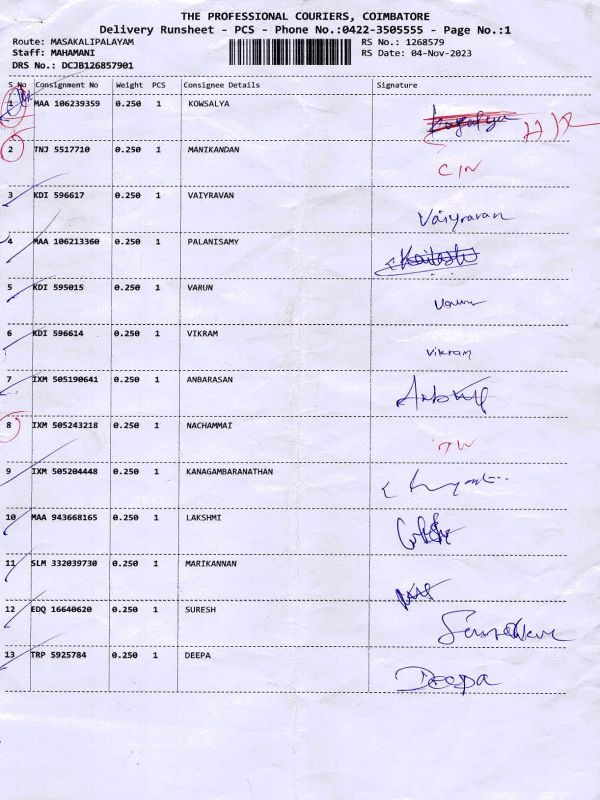 THE PROFESSIONAL COURIERS, COIMBATORE
Delivery Runsheet - PCS - Phone No.:0422-3505555 - Page No.:1
Route: MASAKALIPALAYAM RS No.: 1268579
Staff: MAHAMANI RS Date: 04-Nov-2023
DRS No.: DCJB126857901
S No Consignment No Weight PCS Consignee Details Signature
1 MAA 106239359 0.250 1 KOWSALYA
2 TNJ 5517710 0.250 1 MANIKANDAN
CIN
3 KDI 596617 0.250 1 VAIYRAVAN
Vaiyravan
4 MAA 106213360 0.250 1 PALANISAMY
5 KDI 595015 0.250 1 VARUN
Varun
6 KDI 596614 0.250 1 VIKRAM
Vikram
7 IXM 505190641 0.250 1 ANBARASAN
8 IXM 505243218 0.250 1 NACHAMMAI
9 IXM 505204448 0.250 1 KANAGAMBARANATHAN
10 MAA 943668165 0.250 1 LAKSHMI
11 SLM 332039730 0.250 1 MARIKANNAN
12 EDQ 16640620 0.250 1 SURESH
13 TRP 5925784 0.250 1 DEEPA
Deepa